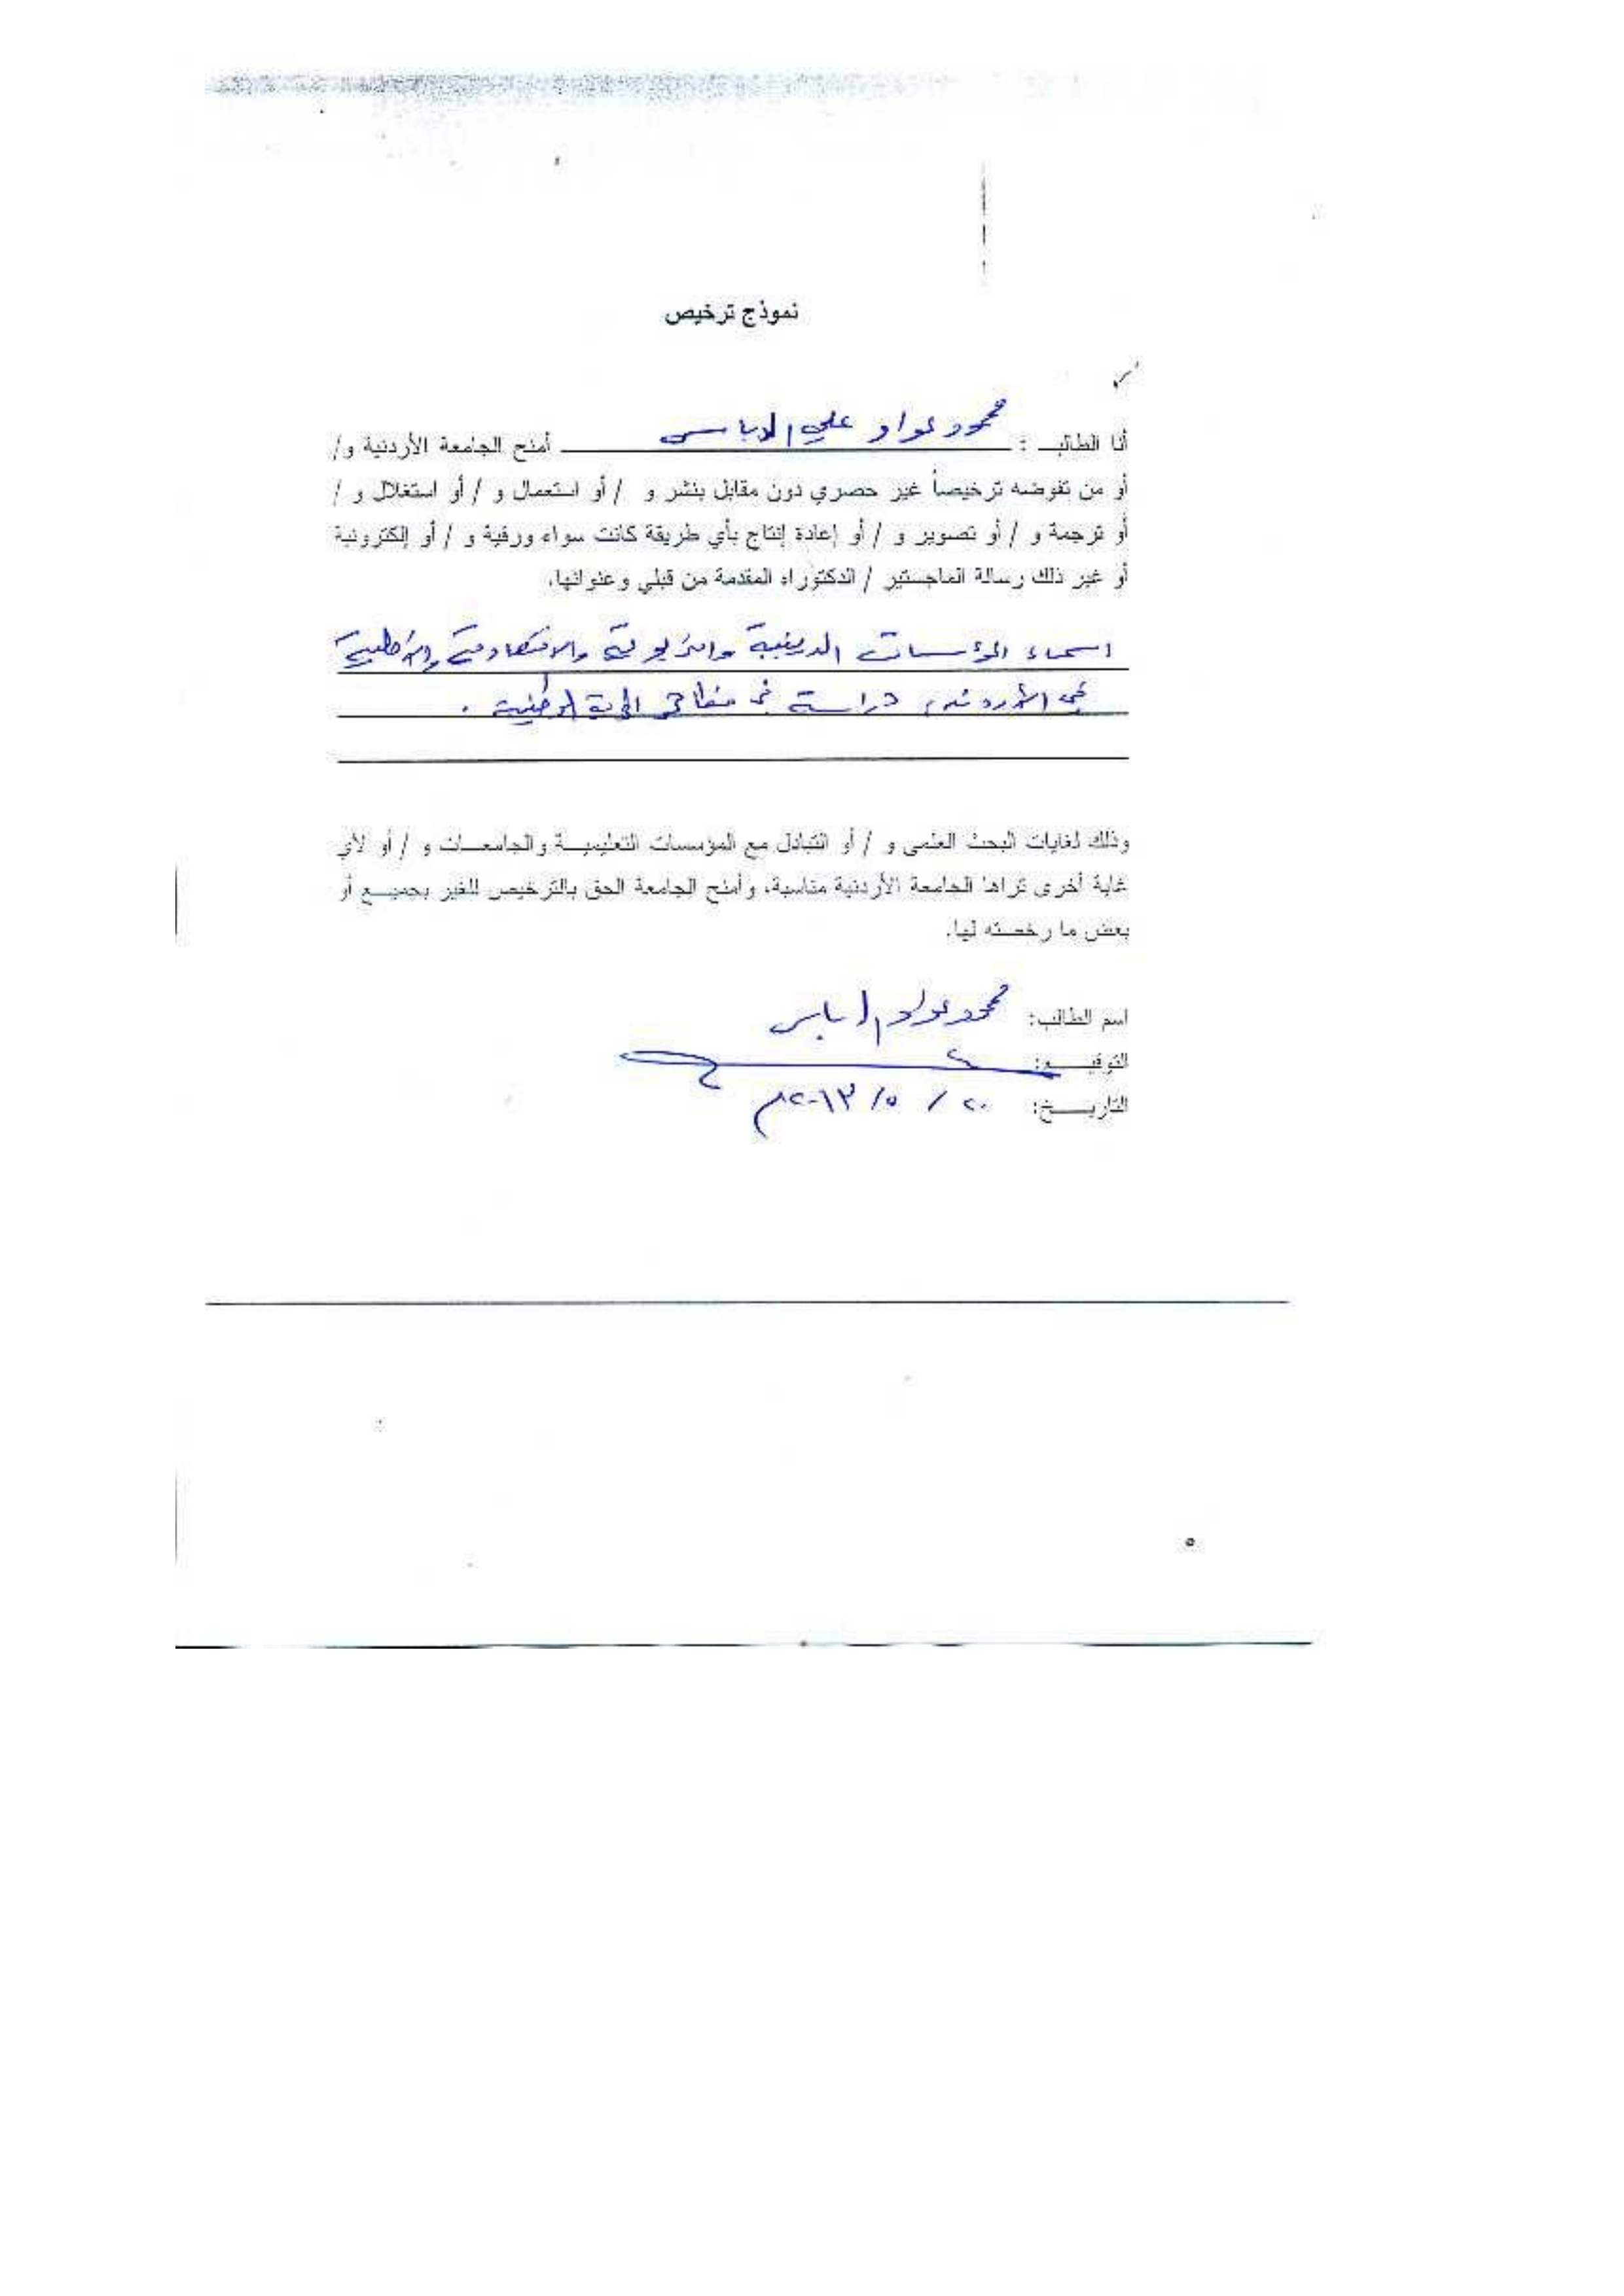 نموذج ترخيص
أنا الطالب : محمود عواد علي الدباس أمنح الجامعة الأردنية و/
أو من تفوضه ترخيصاً غير حصري دون مقابل بنشر و / أو استعمال و / أو استغلال و /
أو ترجمة و / أو تصوير و / أو إعادة إنتاج بأي طريقة كانت سواء ورقية و / أو إلكترونية
أو غير ذلك رسالة الماجستير / الدكتوراه المقدمة من قبلي وعنوانها.
اسماء المؤسسات الدينية والتربوية والاقتصادية والطبية
في الأردن دراسة في الوطنية .
وذلك لغايات البحث العلمي و / أو التبادل مع المؤسسات التعليمية والجامعات و / أو لأي
غاية أخرى تراها الجامعة الأردنية مناسبة، وأمنح الجامعة الحق بالترخيص للغير بجميع أو
بعض ما رخصته لها.
اسم الطالب: محمود عواد الدباس
التوقيع:
التاريخ: ٢٠ / ٥ / ٢٠١٣م